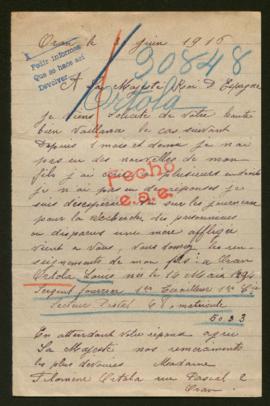 Oran le juin 1916
Pedir informes
Que se hace así
Devolver
30848
A Sa Majesté Roi D'Espagne
Ortola
Je viens solicité de votre haute
bien vaillance le cas suivant
Depuis 1 mois et demie je n'ai
pas eu des nouvelles de mon
fils j'ai plusieurs
je n'ai pas eu des réponses je
suis sur les journeaux
pour la recherche des prisonniers
ou disparus une mère affligée
vient a vous, vous les ren-
seignements de mon fils: à Oran
Ortola Louis né le 14 Mars 1894
Sergent fourrier 1er Tirailleur 1re Cie
Secteur Postal 68, matricule
5023
Hecho
En attendant votre réponse agrée
Sa Majesté nos remerciements
les plus dévoués Madame
Filomene Ortola rue Pascal 2
Oran